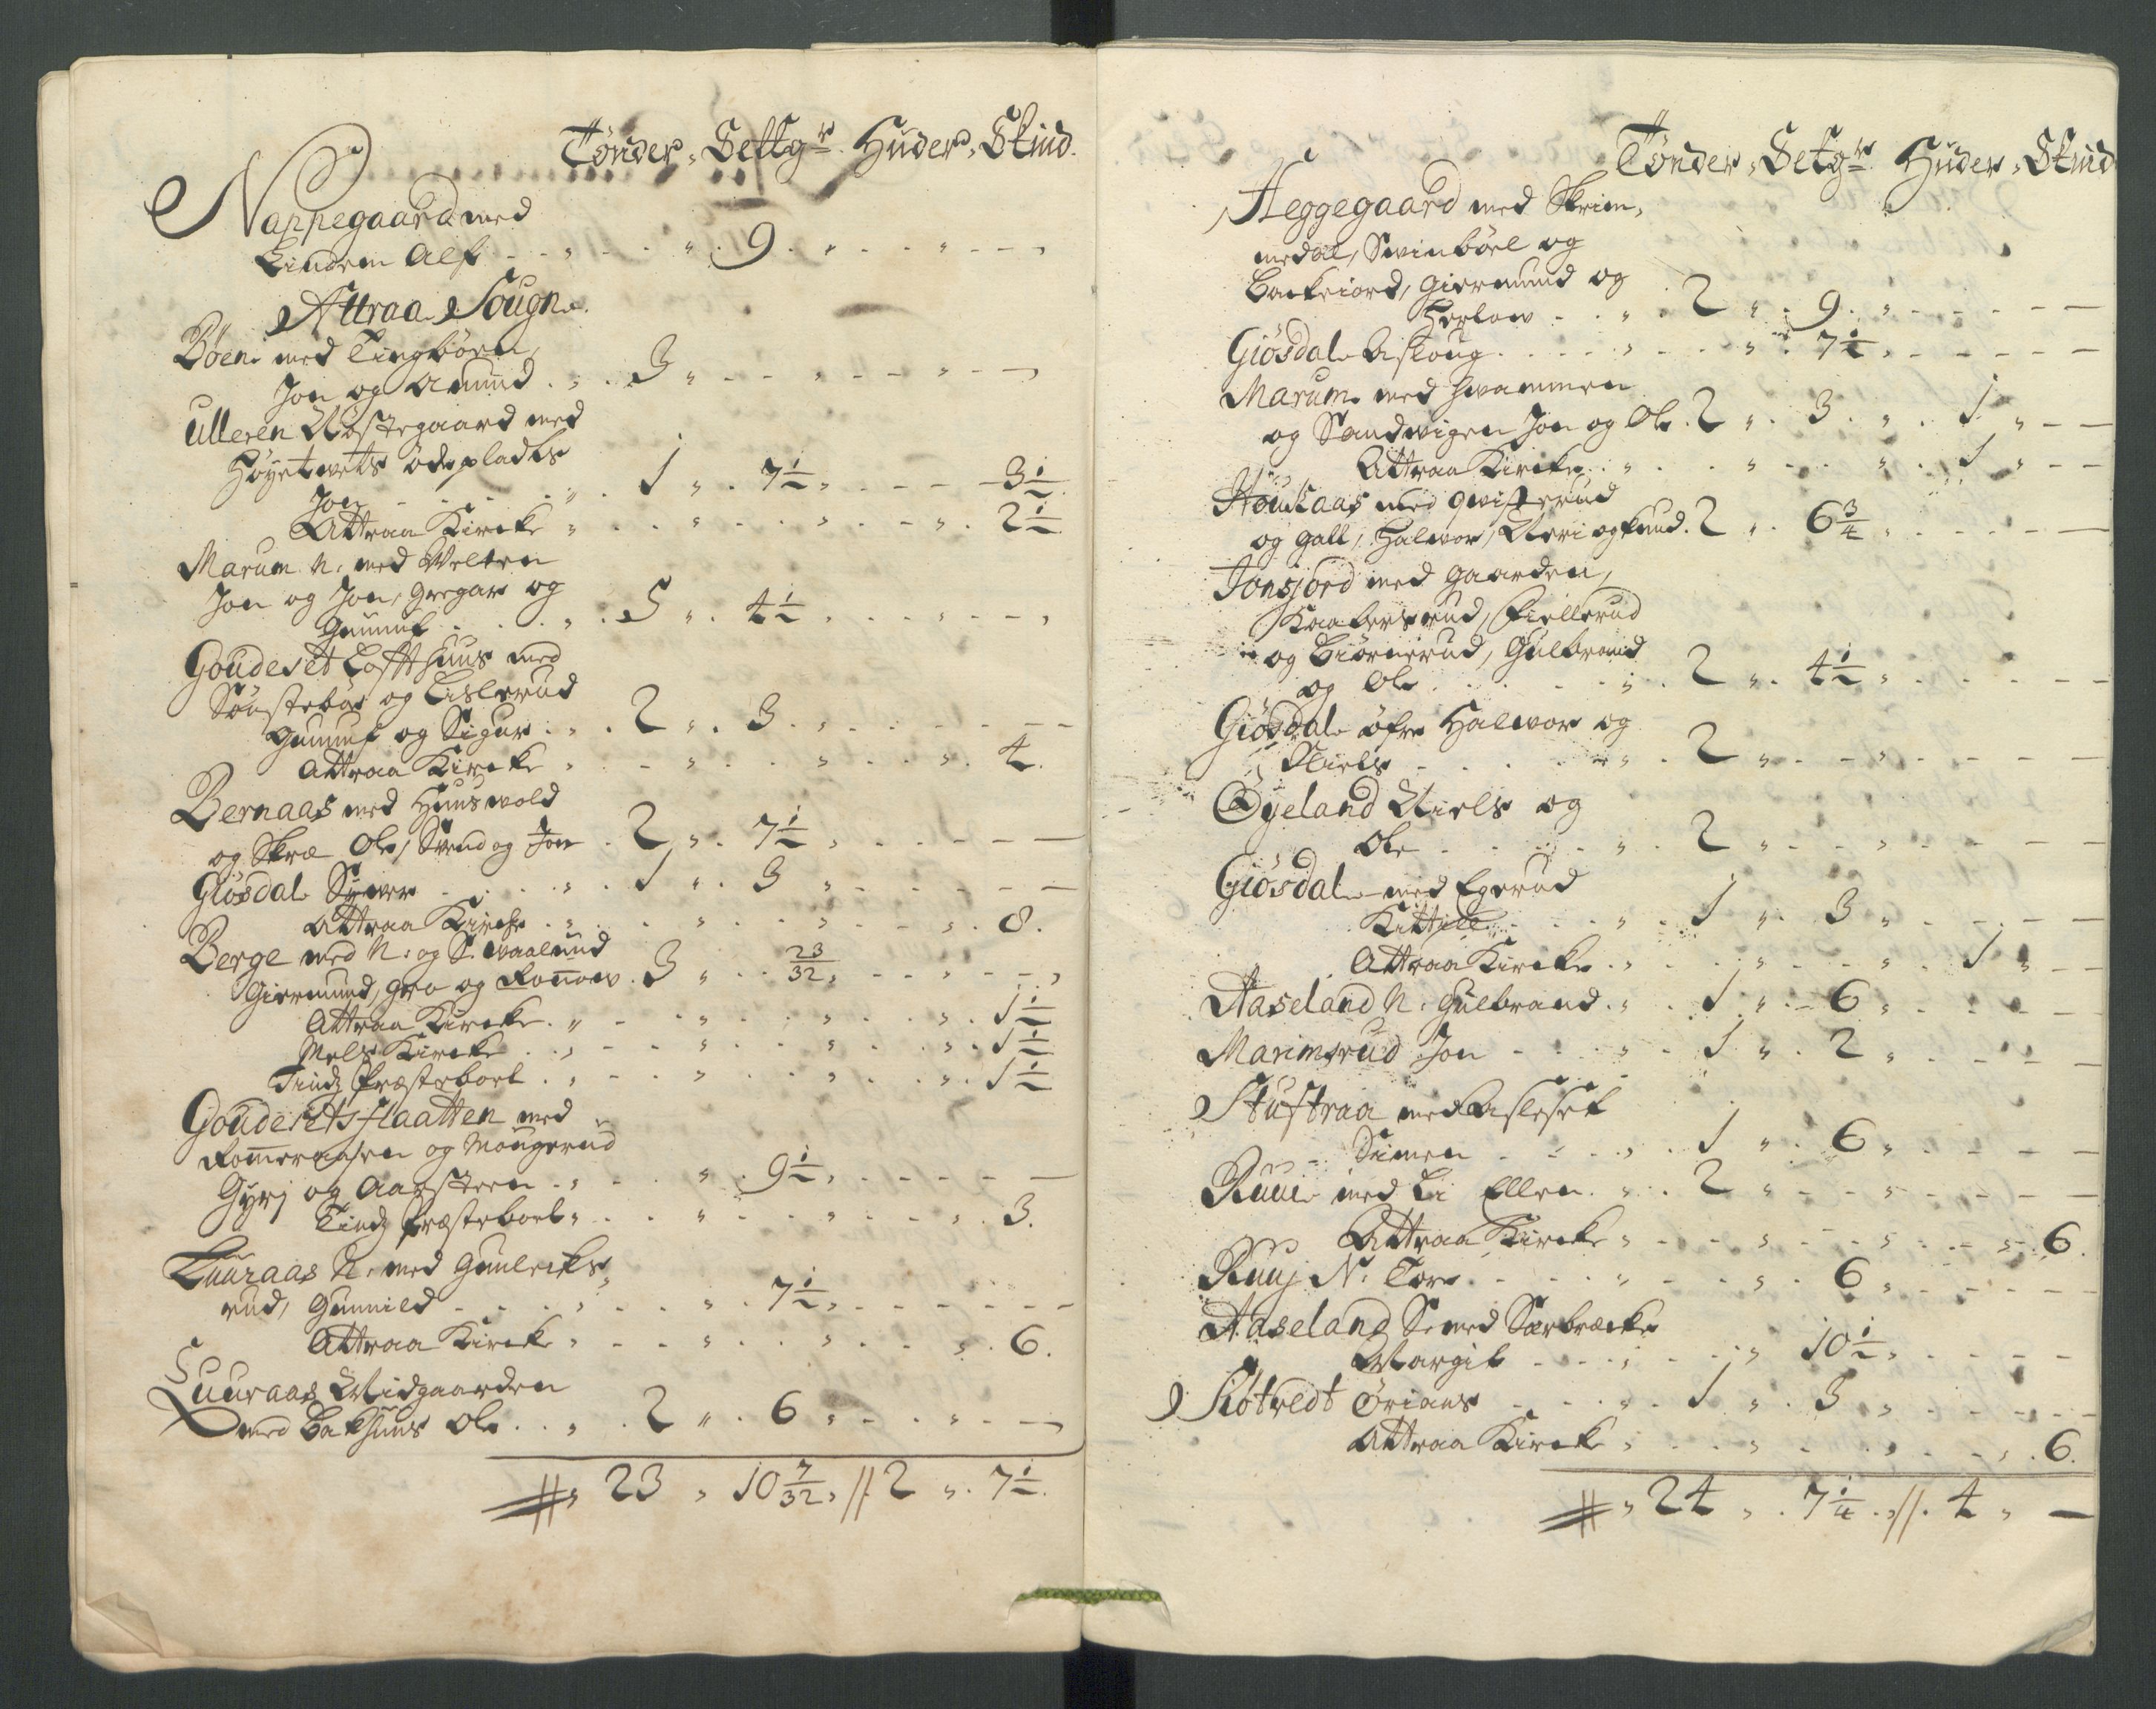 Tönder, Settgr Huder, Skind.
Nappegaard med
Lindem Alf - - " - - " 9. " - - " - - ,
Attraa Sougn.
Böen med Tingböen,
Jon og Amund . " . 3 " - - " - - " - - ,
Ulleren Nöstegaard med
Höyetvets ödepladts
Jon - - - - " . 1 " . 7 1/2 " - - - - 3 1/2
Attraa Kircke " . . " . . " . . " . 2 1/2
Marum N. med Velten
Jon og Jon, Gregar og
Gunnuf . . . " . 5 " . 4 1/2 " - - " - - ,
Goudeset Loffthuus med
Sönsteböe og Lislerud
Gunnuf og Sigur . " . 2 " . 3 . " - - - - - -
Attraa Kircke " . - " . . " . . " . 4.
Bernaas med Huusvold
og Skræ Ole, Svend og Jon . 2 " . 7 1/2 " - - - - -
Giösdal Syver - . . . " . 1 " . 3 " - - - - -
Attraa Kircke . " . . " . . " . - " . 8.
Berge med N: og S. Vaalund
Giermund, Gro og Ronnow . 3 " . . 23/32 " - - " - - ,
Attraa Kircke . " - . " . . " . . " . 1 1/2
Mels Kircke . . " - - " . . " . . " . 1 1/2
Tindz Præsteboel . " - - " . . " . . " . 1 1/2
Goudesetsflaatten med
og Mougerud
Gyrj og Aarsteen . " . . " . 9 1/2 " - - - - -
Tindz Præsteboel " . . " - - " - - " . 3.
Luuraas N. med Gunleiks,,
rud, Gunnild - - - " - - " . 7 1/2 " - - - - - -
Attraa Kircke " - - " . . " . - " . 6.
Luuraas Midgaarden
med Bakhuus Ole . . " . 2 " . 6 " - - " - - ,
# " 23 " 10 7/32 " // 2 " . 7 1/2.
Tönder, Setgr Huder, Skind
Heggegaard med Skrim,
medal, Svinböel og
Backejord, Giermund og
Herlow - . . " . 2 " . 9 . " - - - - -
Giösdal Asloug . . . . " - - " . 7 1/2 " - - - - -
Marum med Hvammen
og Sandvigen Jon og Ole . 2 " . 3 . " . 1 " - -
Attraa Kircke . " . . " - - " . 1 " - -
Houkaas med Qvisterud
og Gall, Halvor, Neri og Knud . 2 " . 6 3/4 " - - - -
Jonsjord med Gaarden,
Kaabersrud, Fiellerud
og Biörnerud, Gulbrand
og Ole . . . . . " . 2 " . 4 1/2 " - - - -
Giösdal öfre Halvor og
Niels - . . . . " . 2 " - - " - - - -
Öyeland Niels og
Ole - . . . - " . 2 " - - " - - - -
Giösdal med Egerud
Kittill . . . " . 1 " . 3 " - - - -
Attraa Kircke . " . . " - - " . 1 " - -
Aaseland N. Gulbrand . " . 1 " . - 6 " - - - -
Marimsrud Jon - . . " . 1 " . 2 " - - - -
Stuftraa med Aasleset
Simen - - . . " . 1 " . 6 " - - - -
Ruui med Li Ellen . " . 2 " - - " - - - -
Attraa Kircke " - - " - - " . - " 6.
Ruuj N. Tore . - . . " - - " . 6 " - - - -
Aaseland S. med Sørbrecke
Margit - . . " . - . " 10 1/2 " - - - -
Skötvedt Örians - . . " . 1 " . 3 " - - - -
Attraa Kircke " . . " - . " . - " . 6.
# " 24 " . 7 1/4 . " // . 4 " . —